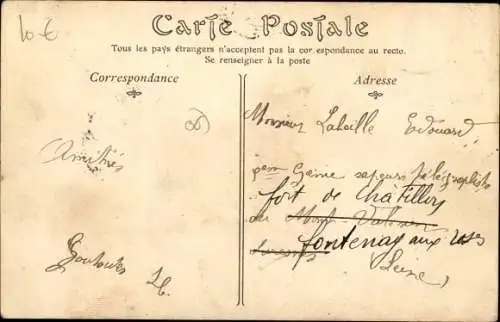 10 €
Carte Postale
Tous les pays étrangers n'acceptent pas la correspondance au recto.
Se renseigner à la poste
Correspondance
Adresse
Amitiés
Monsieur Laheille Edouard
Génie sapeurs télégraphiste
fort de Châtillon
du Mont-Valérien
fontenay aux roses
(Seine)